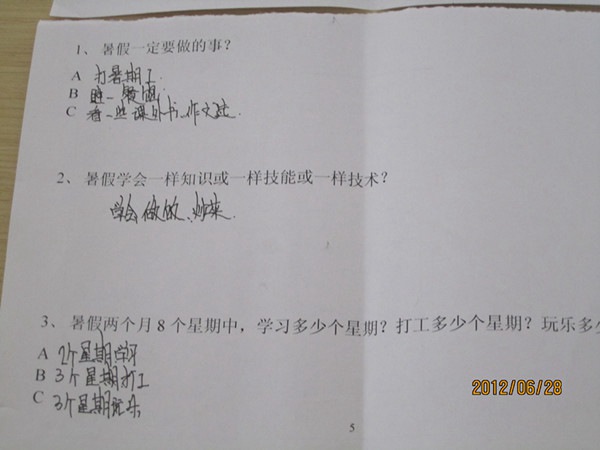 1、 暑假一定要做的事？
A 打暑期工
B 进一餐馆
C 看一些课外书、作文选.
2、 暑假学会一样知识或一样技能或一样技术？
学会做饭、炒菜.
3、 暑假两个月 8 个星期中，学习多少个星期？打工多少个星期？玩乐多
A 2个星期学习
B 3个星期打工
C 3个星期玩乐
2012/06/28
5